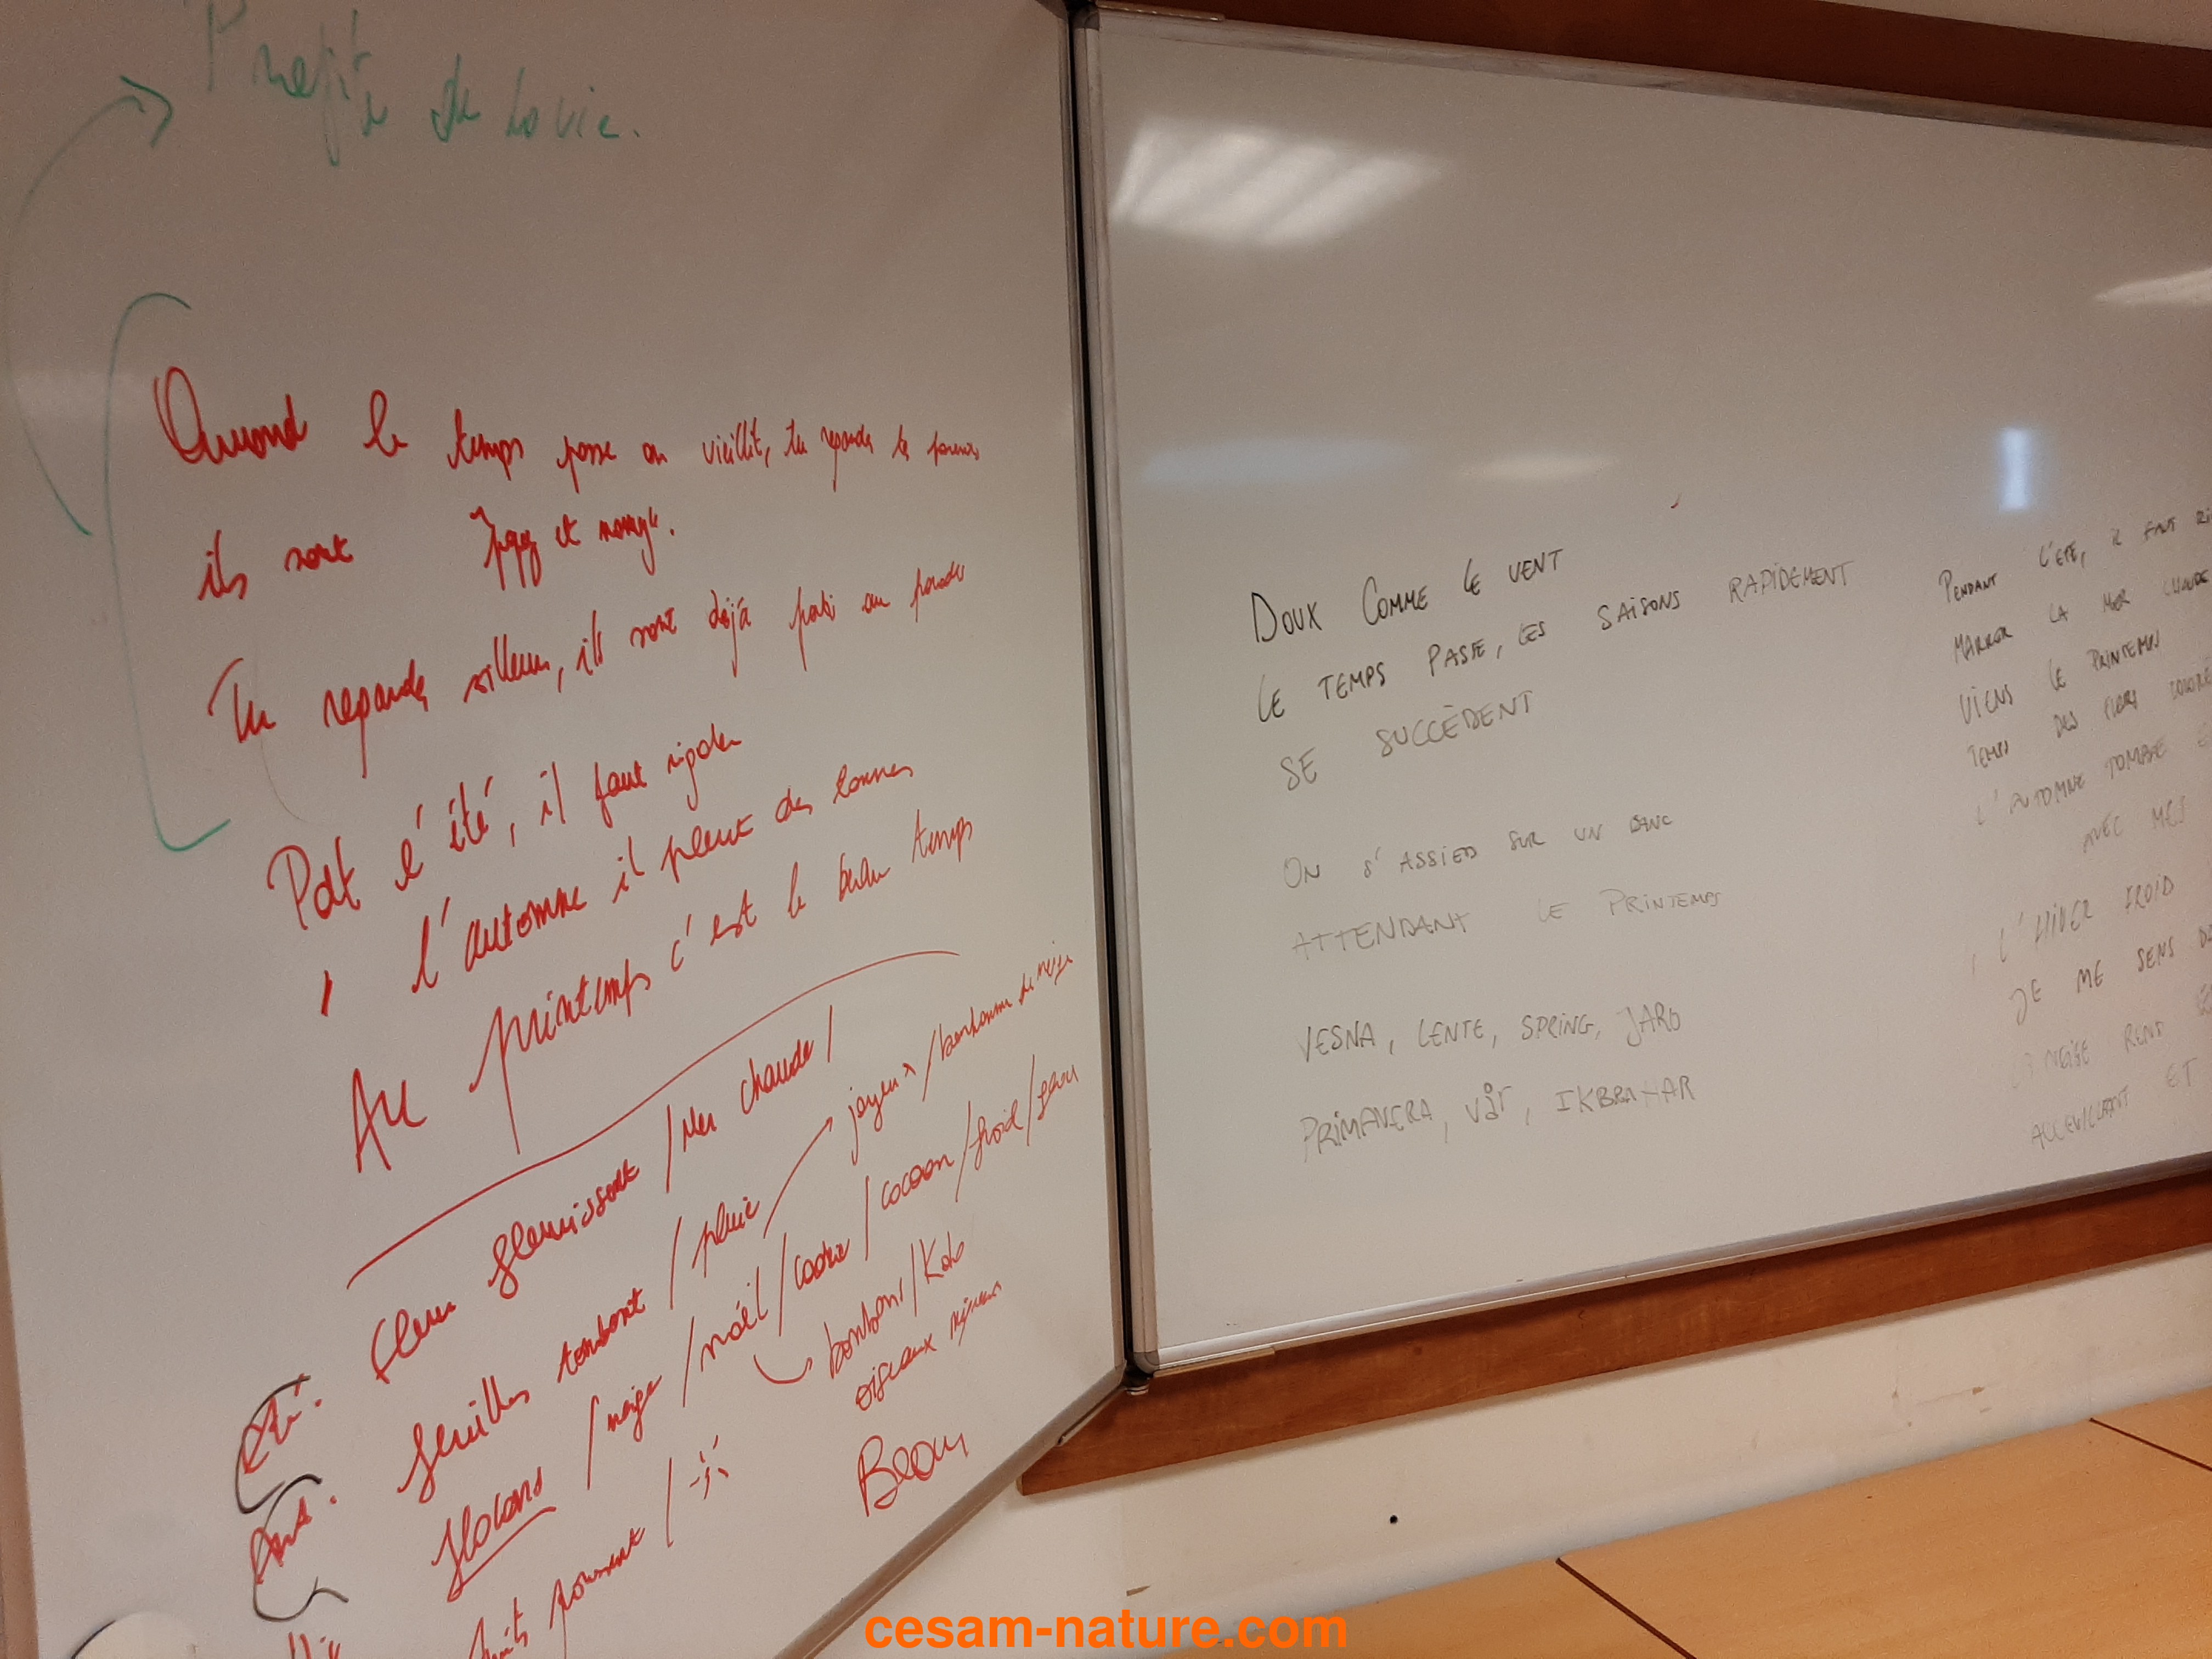 Profite de la vie.
Quand le temps passe on vieillit, tu regardes les
ils sont et
Tu regardes ailleurs, ils sont déjà au
Pdt l'été, il faut rigoler
l'automne il pleut des tonnes
Au printemps c'est le beau temps
Été: fleurs fleurissent / Mer chaude /
Aut. feuilles tombent / pluie joyeux / bonhomme de neige
flocons / neige / noël / cadre / cocoon / froid /
bonbons /
oiseaux
poussent /
Beau
DOUX COMME LE VENT
LE TEMPS PASSE, LES SAISONS RAPIDEMENT
SE SUCCÈDENT
ON S'ASSIED SUR UN BANC
ATTENDANT LE PRINTEMPS
VESNA, LENTE, SPRING, JARO
PRIMAVERA, VÅR, IKBRAHAR
PENDANT L'ÉTÉ, IL FAUT
MARRER LA MER CHAUDE
VIENS LE PRINTEMPS
TEMPS DES
L'AUTOMNE TOMBRE
AVEC MES
L'HIVER FROID
JE ME SENS
NEIGE REND
ACCEUILLANT ET
cesam-nature.com